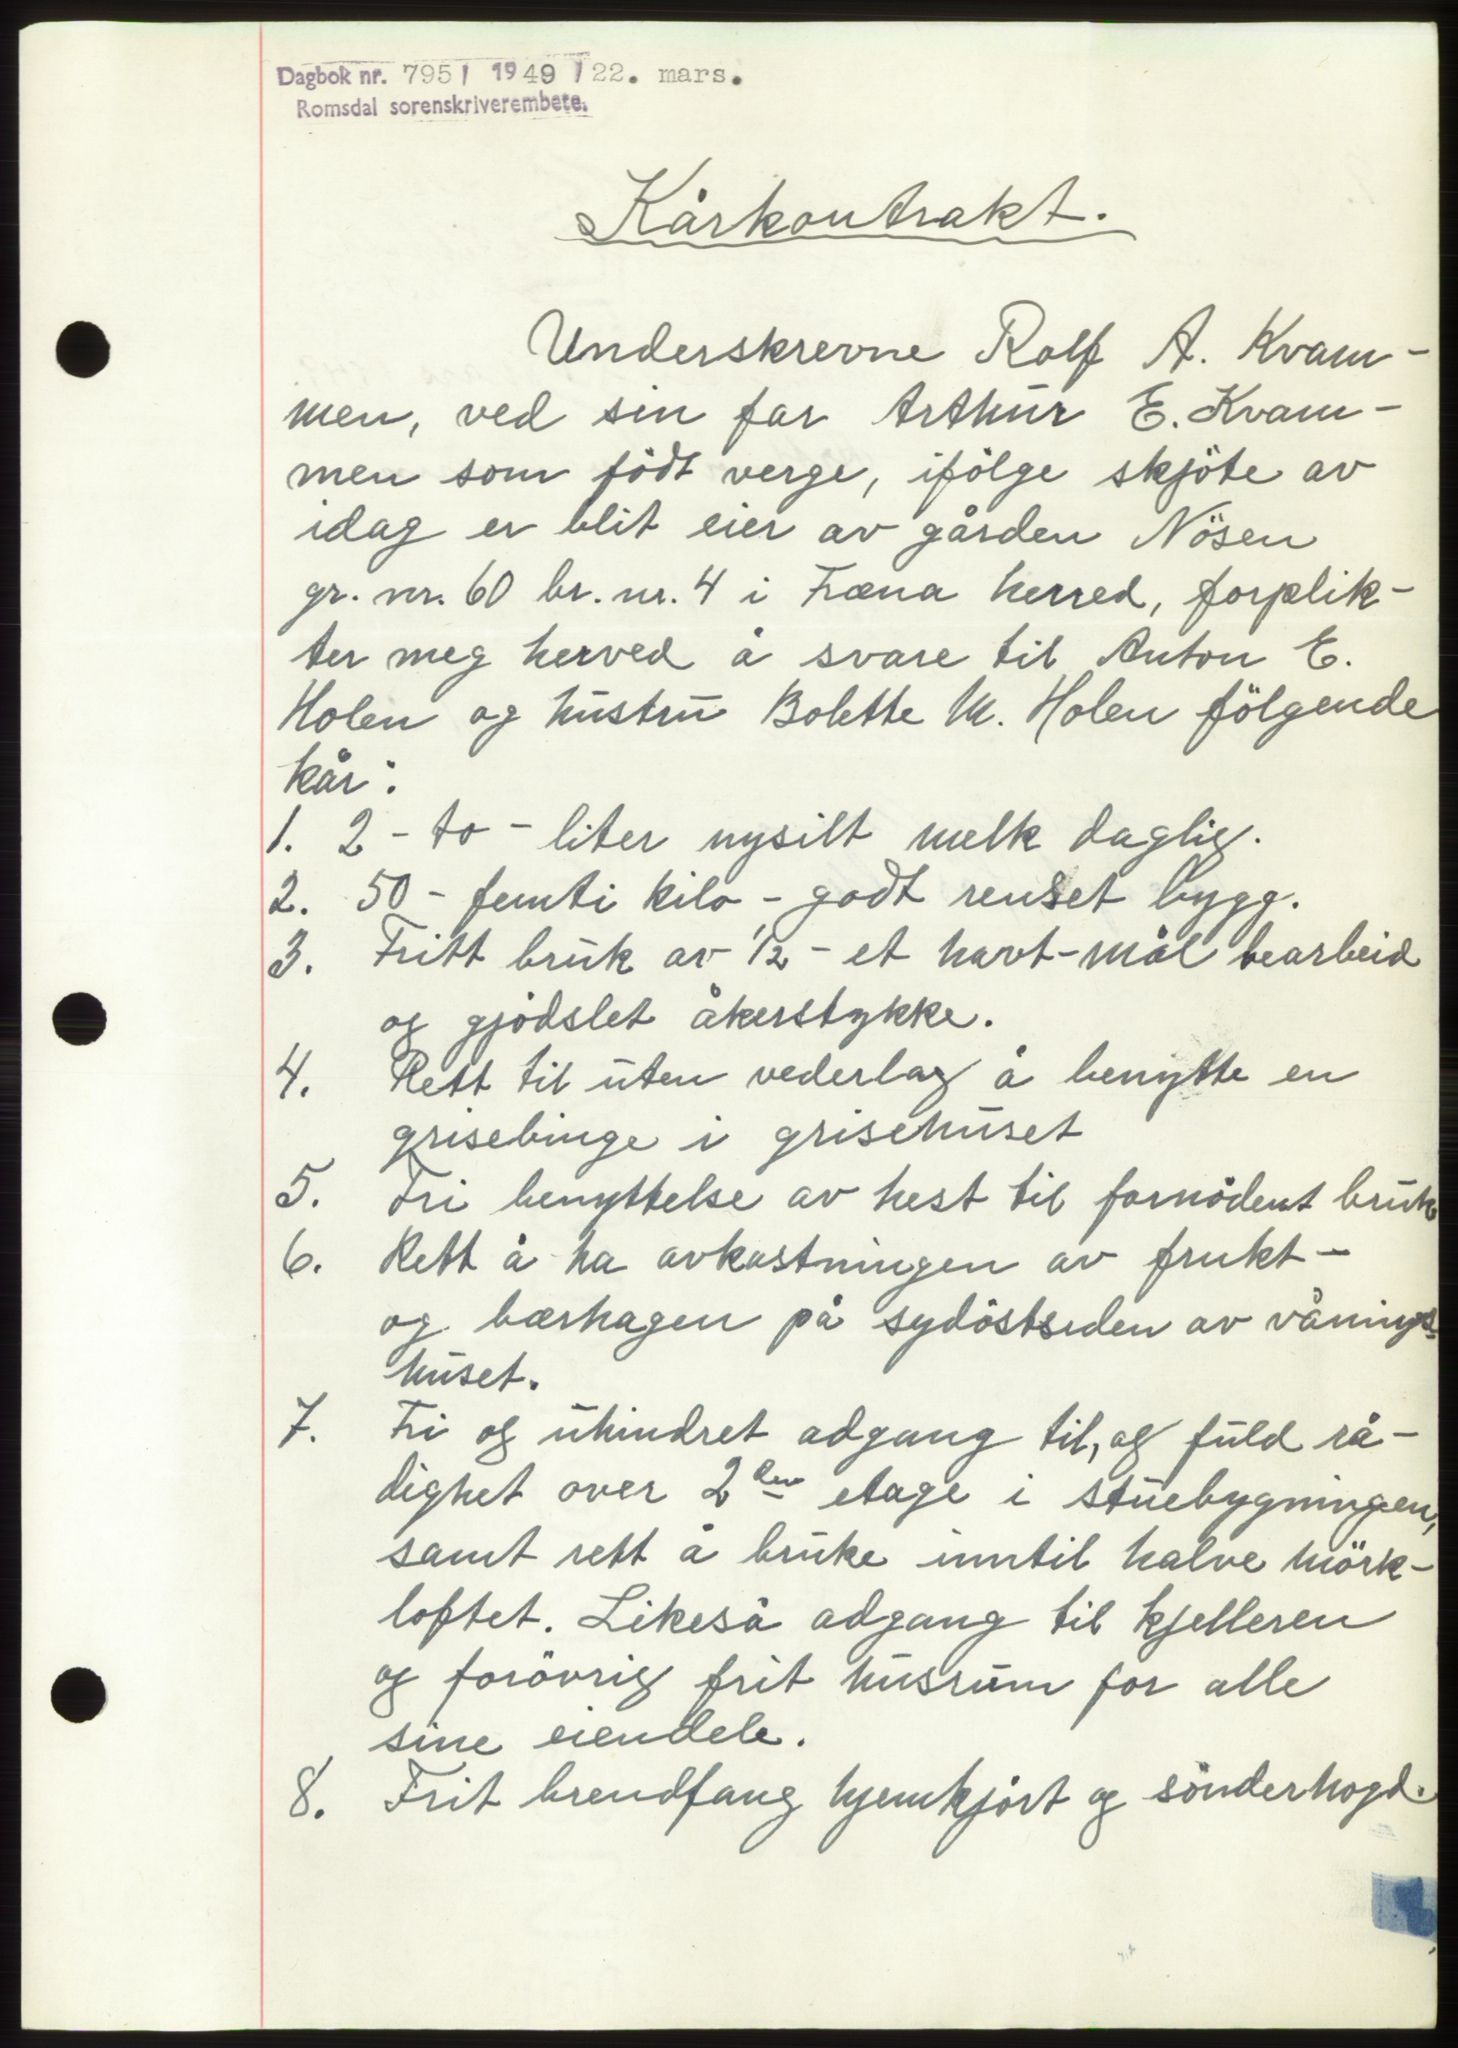 Dagbok nr. 795/ 1949 / 22. mars.
Romsdal sorenskriverembete.
Kårkontrakt.
Underskrevne Rolf A. Kvam-
men, ved sin far Arthur E. Kvam-
men som födt verge, ifölge skjöte av
idag er blit eier av gården Nösen
gr. nr. 60 br. nr. 4 i Fræna herred, forplik-
ter meg herved å svare til Anton E.
Holen og hustru Bolette M. Holen fölgende
kår:
1. 2 - to - liter nysilt melk daglig.
2. 50 - femti kilo - godt renset bygg.
3. Fritt bruk av 1/2 - et havt - mål bearbeid
og gjödslet åkerstykke.
4. Rett til uten vederlag å benytte en
grisebinge i grisehuset
5. Fri benyttelse av hest til fornödent bruk
6. Rett å ha avkastningen av frukt-
og bærhagen på sydöstsiden av vånings-
huset.
7. Fri og uhindret adgang til, og fuld rå-
dighet over 2den etage i stuebygningen,
samt rett å bruke inntil halve mörk-
loftet. Likeså adgang til kjelleren
og forövrig frit husrum for alle
sine eiendele.
8. Frit brendfang hjemkjört og sönderhogd.